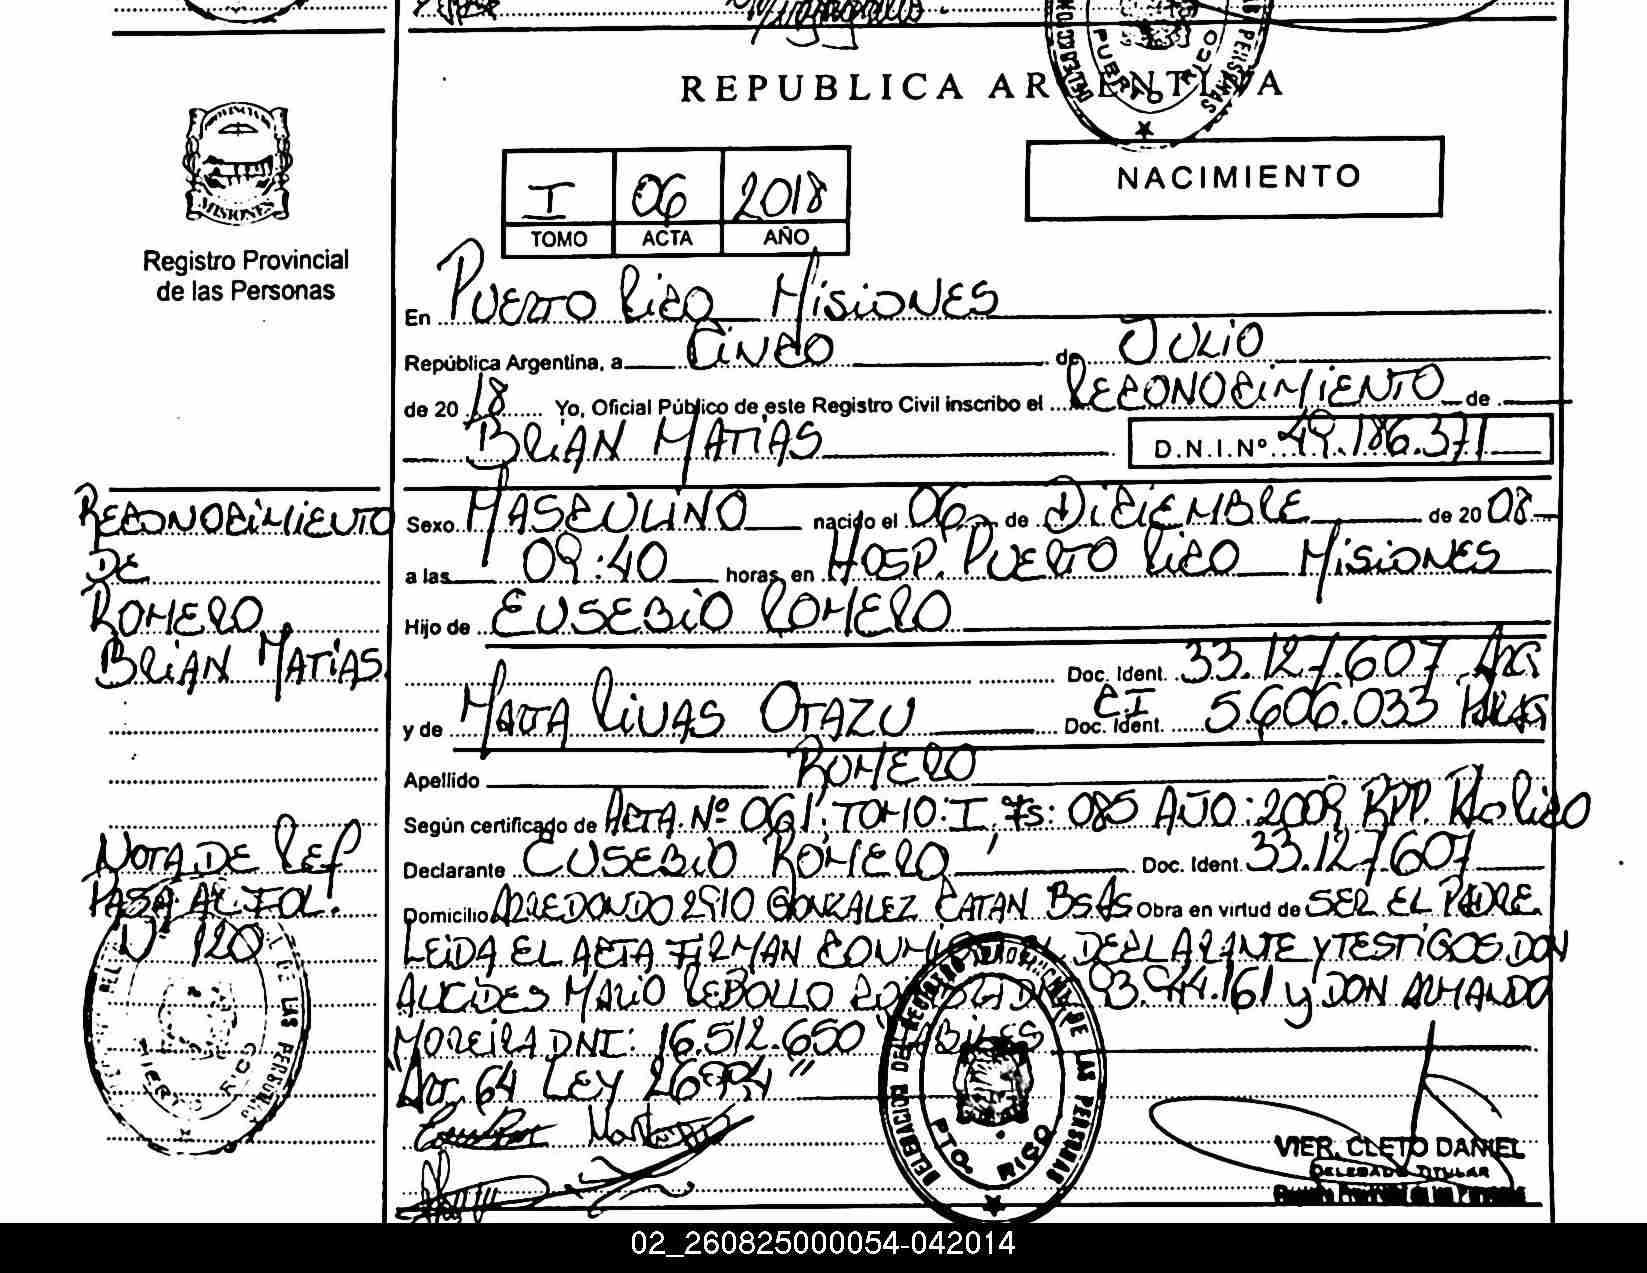 REPUBLICA ARGENTINA
NACIMIENTO
I 06 2018
TOMO ACTA AÑO
MISIONES
Registro Provincial
de las Personas
En PUERTO RICO MISIONES
República Argentina, a CINCO de JULIO
de 20 18 Yo, Oficial Público de este Registro Civil inscribo el RECONOCIMIENTO de
BRIAN MATIAS D.N.I.Nº 49.186.371
Sexo MASCULINO nacido el 06 de DICIEMBRE de 20 08
a las 09:40 horas, en HOSP. PUERTO RICO MISIONES
Hijo de EUSEBIO ROMERO
Doc. Ident. 33.127.607 ARG
y de MARTA RIVAS OTAZU Doc. Ident. CI 5.606.033
Apellido ROMERO
Según certificado de ACTA Nº 061, TOMO: I, Fs: 085 AÑO: 2009 RPP. Pto Rico
Declarante EUSEBIO ROMERO Doc. Ident. 33.127.607
Domicilio ARREDONDO 2910 GONZALEZ CATAN BsAs Obra en virtud de SER EL PADRE
LEIDA EL ACTA FIRMAN CONMIGO EL DECLARANTE Y TESTIGOS DON
ALCIDES MARIO REBOLLO 93.944.161 y DON ARMANDO
MOREIRA DNI: 16.512.650 HABILES
"Art. 64 LEY 26994"
RECONOCIMIENTO
DE
ROMERO
BRIAN MATIAS
NOTA DE REF
PASA AL FOL.
Nº 120
DELEGACION DEL REGISTRO PROVINCIAL DE LAS PERSONAS
PTO. RICO
VIER, CLETO DANIEL
DELEGADO TITULAR
Registro Provincial de las Personas
02_260825000054-042014